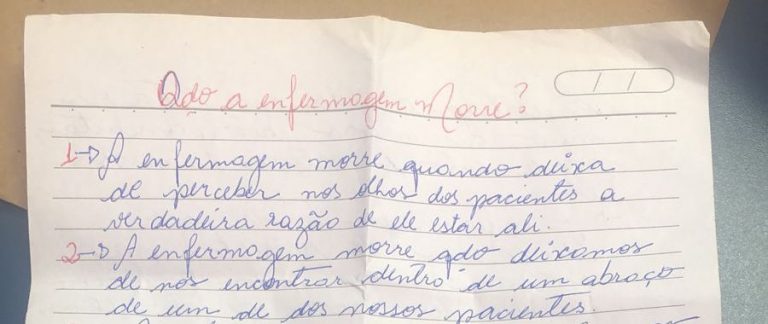 Qdo a enfermagem Morre?
1→ A enfermagem morre quando deixa
de perceber nos olhos dos pacientes a
verdadeira razão de ele estar ali.
2→ A enfermagem morre qdo deixamos
de nos encontrar dentro de um abraço
de um de dos nossos pacientes.